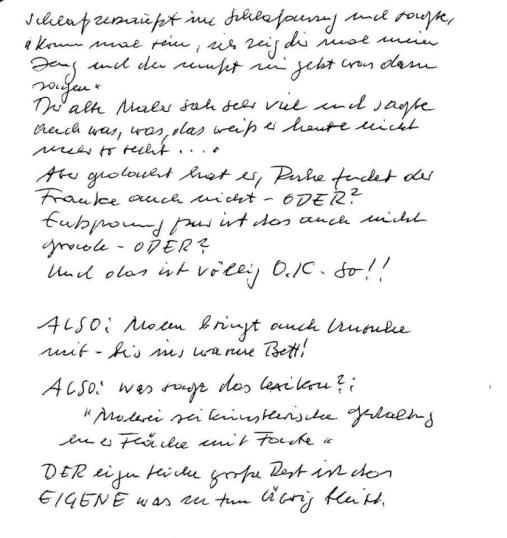 im Schlafanzug und sagte,
"komm mal rein, ich zeig dir mal mein
Zeug und du mußt mir jetzt was dazu
sagen"
Der alte Maler sah sehr viel und sagte
auch was, was, das weiß er heute nicht
mehr so recht ....
Aber gedacht hat er, Ruhe findet der
Franke auch nicht - ODER?
Entspannung pur ist das auch nicht
gerade - ODER?
Und das ist völlig O.K. so!!
ALSO: Malen bringt auch Unruhe
mit - bis ins warme Bett!
ALSO: was sagt das Lexikon?:
"Malerei sei künstlerische Gestaltung
einer Fläche mit Farbe"
DER eigentliche große Rest ist das
EIGENE was zu tun übrig bleibt.